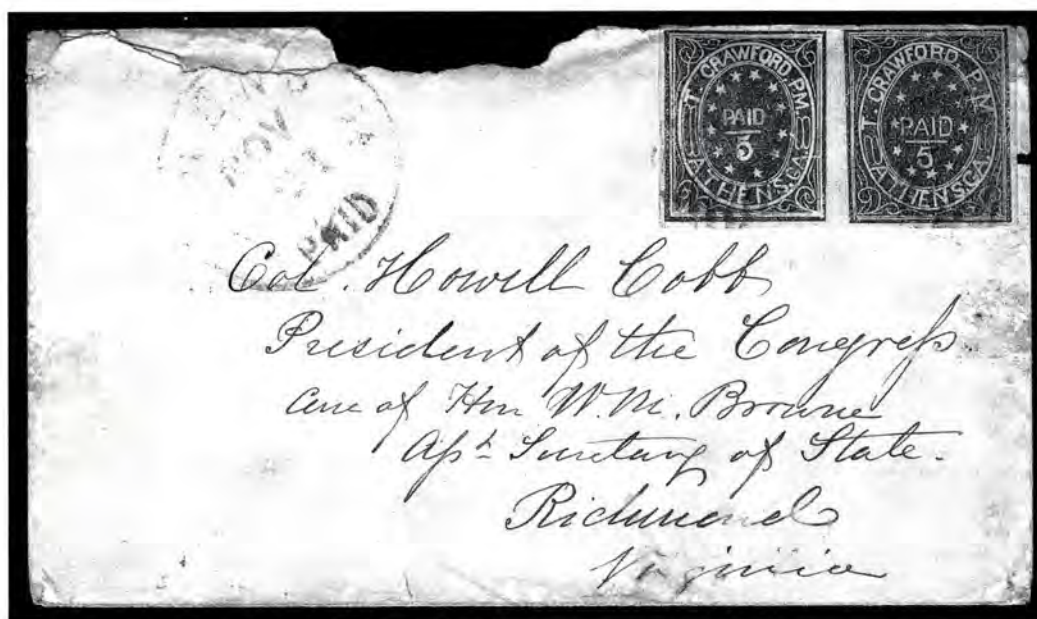 T. CRAWFORD. P.M.
PAID
5
ATHENS, GA.
T. CRAWFORD. P.M.
PAID
5
ATHENS, GA.
NOV
PAID
Col. Howell Cobb
President of the Congreſs
care of Hon W. M. Browne
Aſst Secretary of State.
Richmond
Virginia